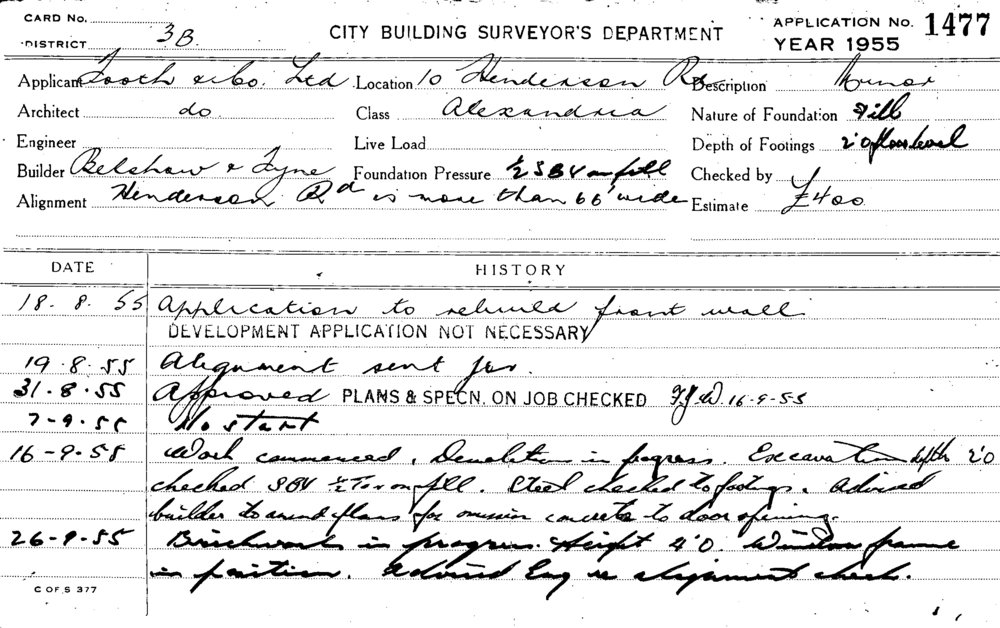 CARD No.
CITY BUILDING SURVEYOR'S DEPARTMENT
APPLICATION No. 1477
DISTRICT 3B.
YEAR 1955
Applicant Tooth & Co. Ltd Location 10 Henderson Rd Description Minor
Architect do Class Alexandria Nature of Foundation Fill
Engineer Live Load Depth of Footings 2'0 floor level
Builder Belshaw & Tyne Foundation Pressure ½ SBY on fill Checked by
Alignment Henderson Rd is more than 66' wide Estimate £400
DATE HISTORY
18. 8. 55 Application to rebuild front wall
DEVELOPMENT APPLICATION NOT NECESSARY
19.8.55 Alignment sent for.
31.8.55 Approved PLANS & SPECN. ON JOB CHECKED 16-9-55
7-9-55 No start
16-9-55 Work commenced. Demolition in progress. Excavation depth 2'0
checked SBY ½ Ton on fill. Steel checked to footings. Advised
builder to amend plans for omission concrete to door opening.
26-9-55 Brickwork in progress. Height 4'0. Window frame
in position. Advised Eng re alignment check.
C OF S 377